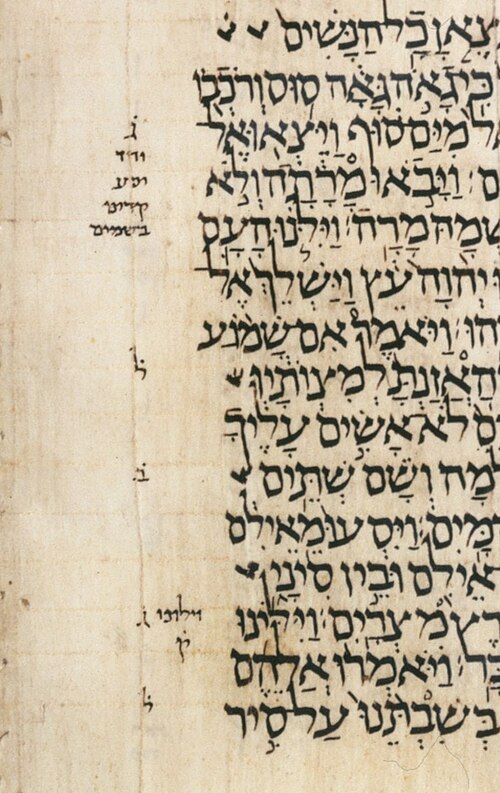 צֶאןָ כָל הַנָּשִׁים
כִּי גָאֹה גָּאָה סוּס וְרֹכְבוֹ
ל מִיַּם סוּף וַיֵּצְאוּ אֶל
ם׃ וַיָּבֹאוּ מָרָתָה וְלֹא
שְׁמָהּ מָרָה׃ וַיִּלֹּנוּ הָעָם
יְהוָה עֵץ וַיַּשְׁלֵךְ אֶל
הוּ׃ וַיֹּאמֶר אִם שָׁמוֹעַ
הַאֲזַנְתָּ לְמִצְוֹתָיו
ם לֹא אָשִׂים עָלֶיךָ
מָה וְשָׁם שְׁתֵּים
מָּיִם׃ וַיִּסְעוּ מֵאֵילִם
אֵילִם וּבֵין סִינָי
רֶץ מִצְרָיִם׃ וַיִּלִּינוּ
בָּר׃ וַיֹּאמְרוּ אֲלֵהֶם
בְּשִׁבְתֵּנוּ עַל סִיר
ג
ל
ב
וילונו ג
ק
ל